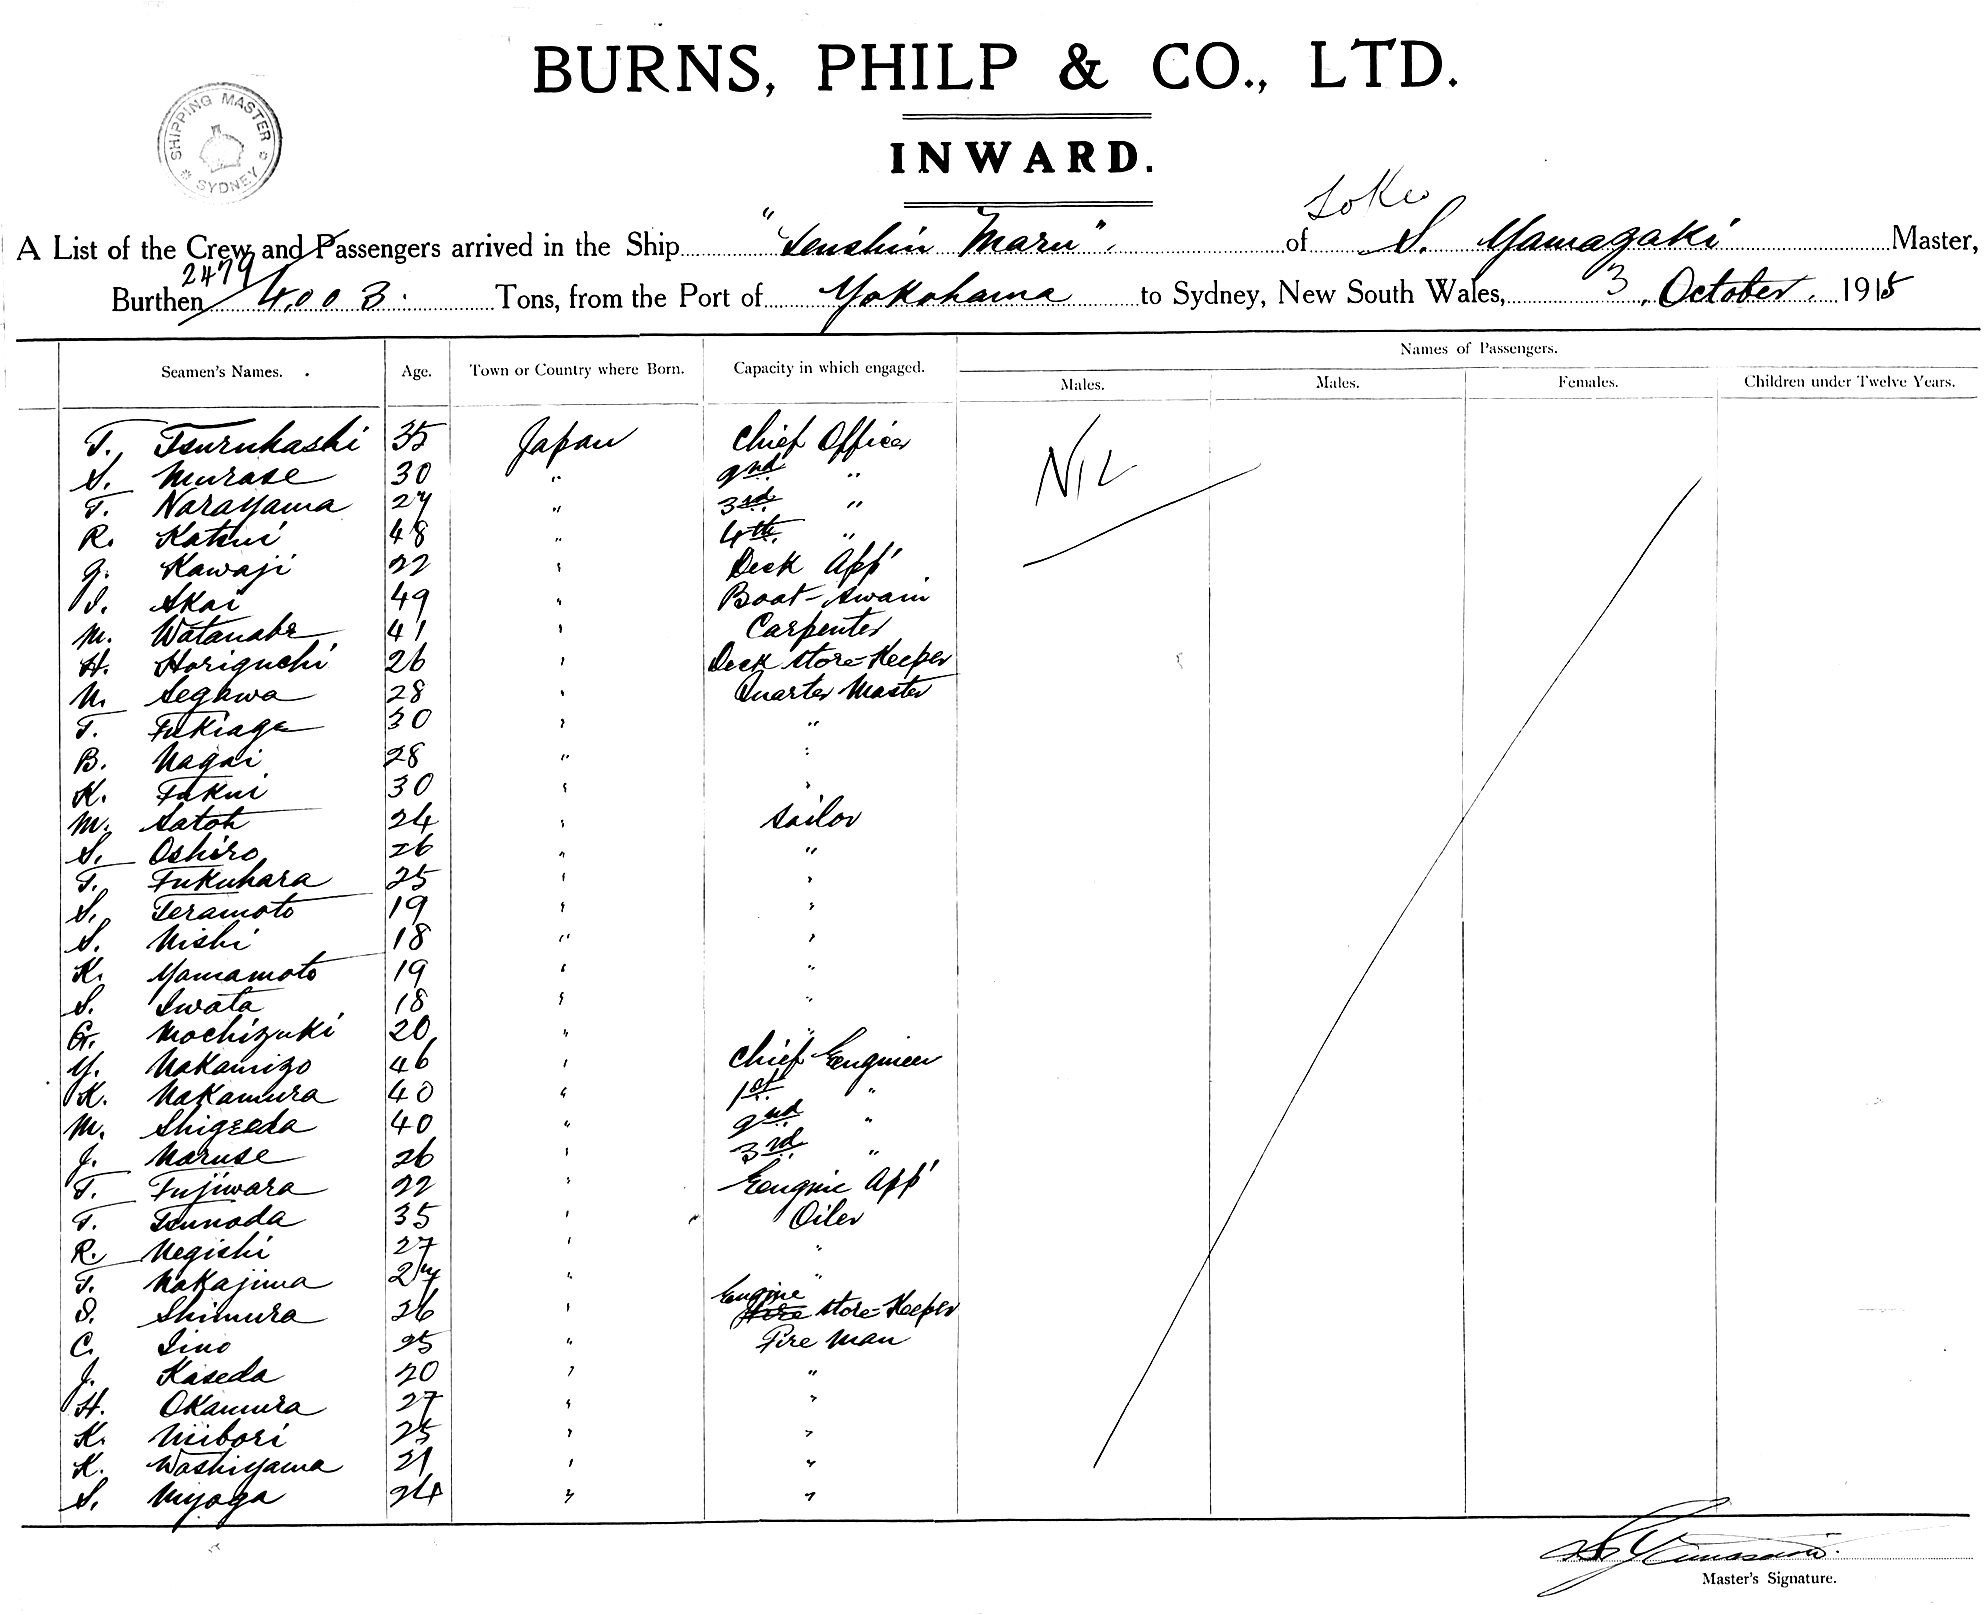 BURNS, PHILP & CO., LTD.
INWARD.
SHIPPING MASTER
SYDNEY
A List of the Crew and Passengers arrived in the Ship "Tenshin Maru". of S. Yamazaki Master,
2479
Burthen 4,003. Tons, from the Port of Yokohama to Sydney, New South Wales, 3, October. 1915
Names of Passengers.
Seamen's Names. Age. Town or Country where Born. Capacity in which engaged. Males. Males. Females. Children under Twelve Years.
T. Tsurukashi 35 Japan Chief Officer NIL
S. Murase 30 " 2nd "
T. Narayama 27 " 3rd "
R. Katsui 48 " 4th "
G. Kawaji 22 " Deck App'
I. Akai 49 " Boat-swain
M. Watanabe 41 " Carpenter
H. Horiguchi 26 " Deck store-Keeper
N. Segawa 28 " Quarter Master
T. Fukiage 30 " "
B. Nagai 28 " "
K. Fukui 30 " "
M. Satoh 24 " Sailor
S. Oshiro 26 " "
T. Fukuhara 25 " "
S. Teramoto 19 " "
S. Nishi 18 " "
K. Yamamoto 19 " "
S. Iwata 18 " "
G. Mochizuki 20 " "
Y. Nakamizo 46 " Chief Engineer
K. Nakamura 40 " 1st "
M. Shigeeda 40 " 2nd "
J. Naruse 26 " 3rd "
T. Fujiwara 22 " Engine App'
T. Tsunoda 35 " Oiler
R. Negishi 27 " "
T. Nakajima 27 " "
S. Shimura 26 " Engine store-Keeper
C. Iino 25 " Fire man
J. Kaseda 20 " "
H. Okamura 27 " "
K. Niibori 25 " "
K. Washiyama 21 " "
S. Miyoga 24 " "
Master's Signature.